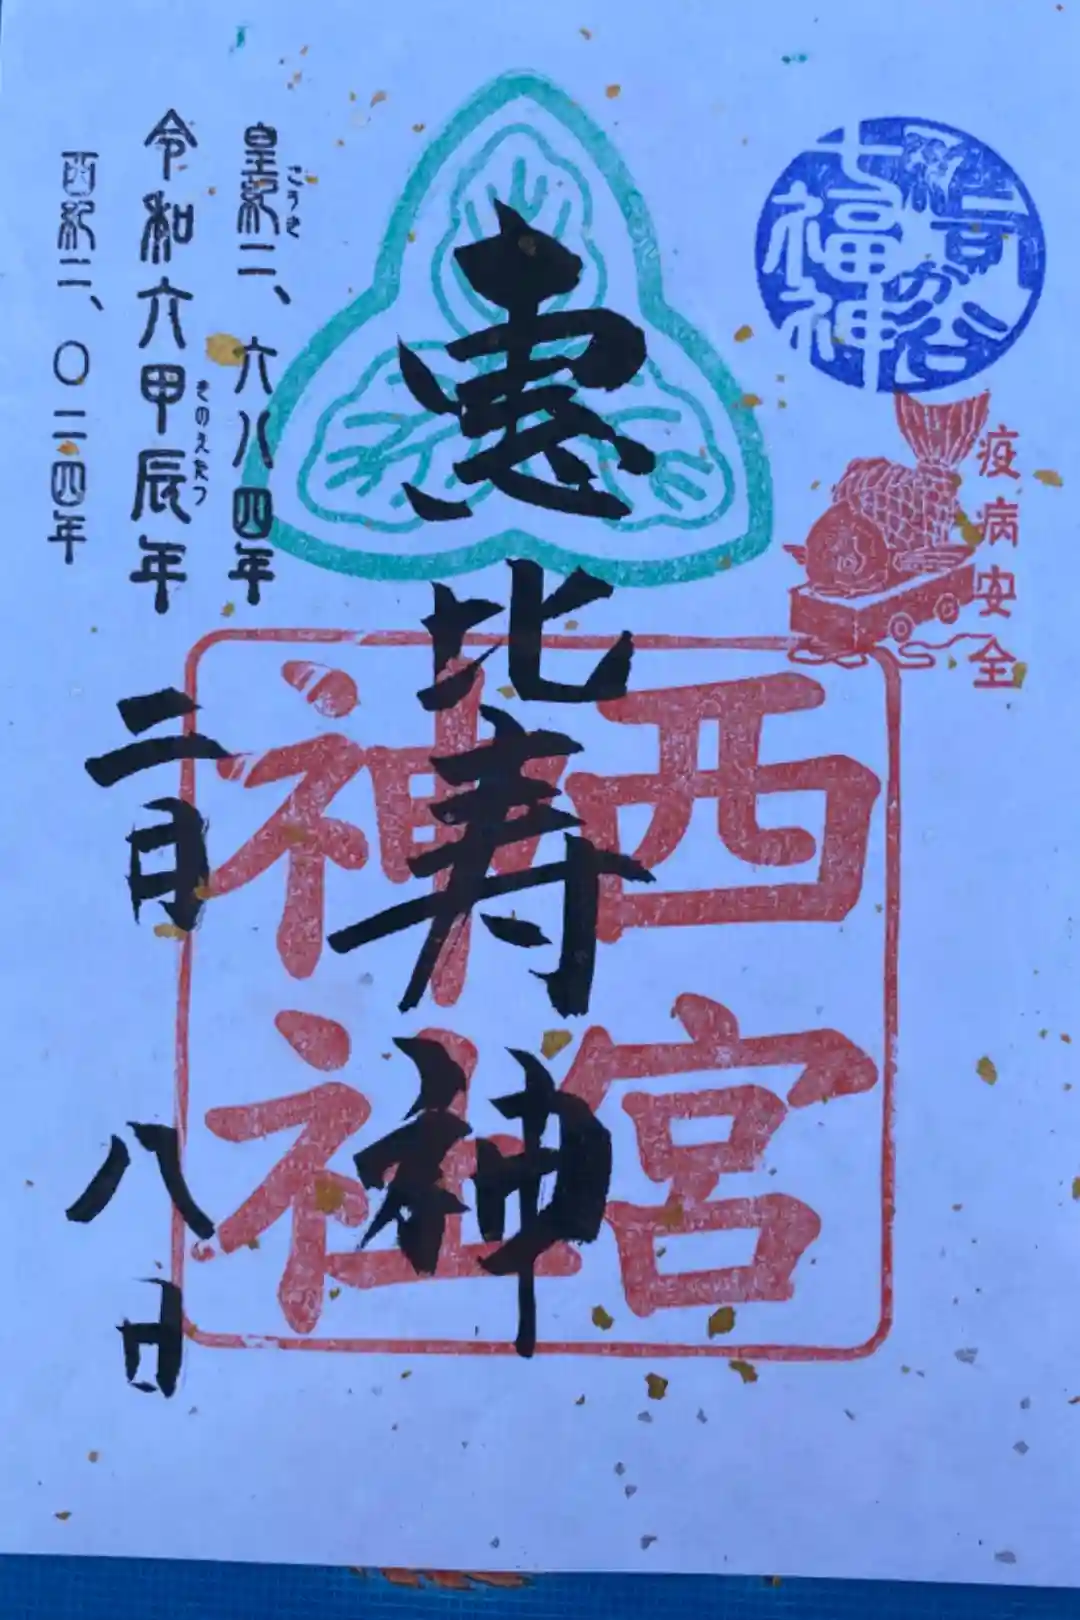 雑司が谷
七福神
疫病安全
恵比寿神
西宮
神社
皇紀二、六八四年
こうき
令和六甲辰年
きのえたつ
西紀二、〇二四年
二月八日